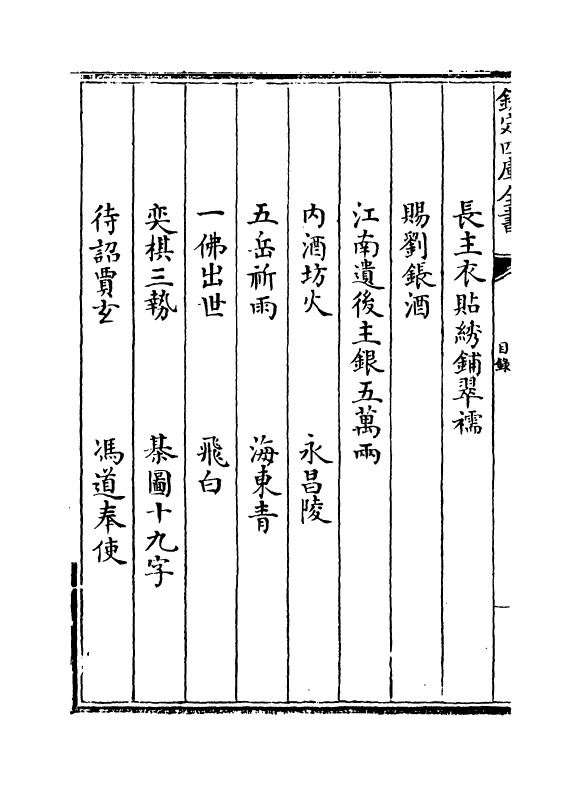 欽定四庫全書
目錄
長主衣貼綉鋪翠襦
賜劉鋹酒
江南遺後主銀五萬兩
内酒坊火　永昌陵
五岳祈雨　海東青
一佛出世　飛白
奕棋三勢　棊圖十九字
待詔賈玄　馮道奉使